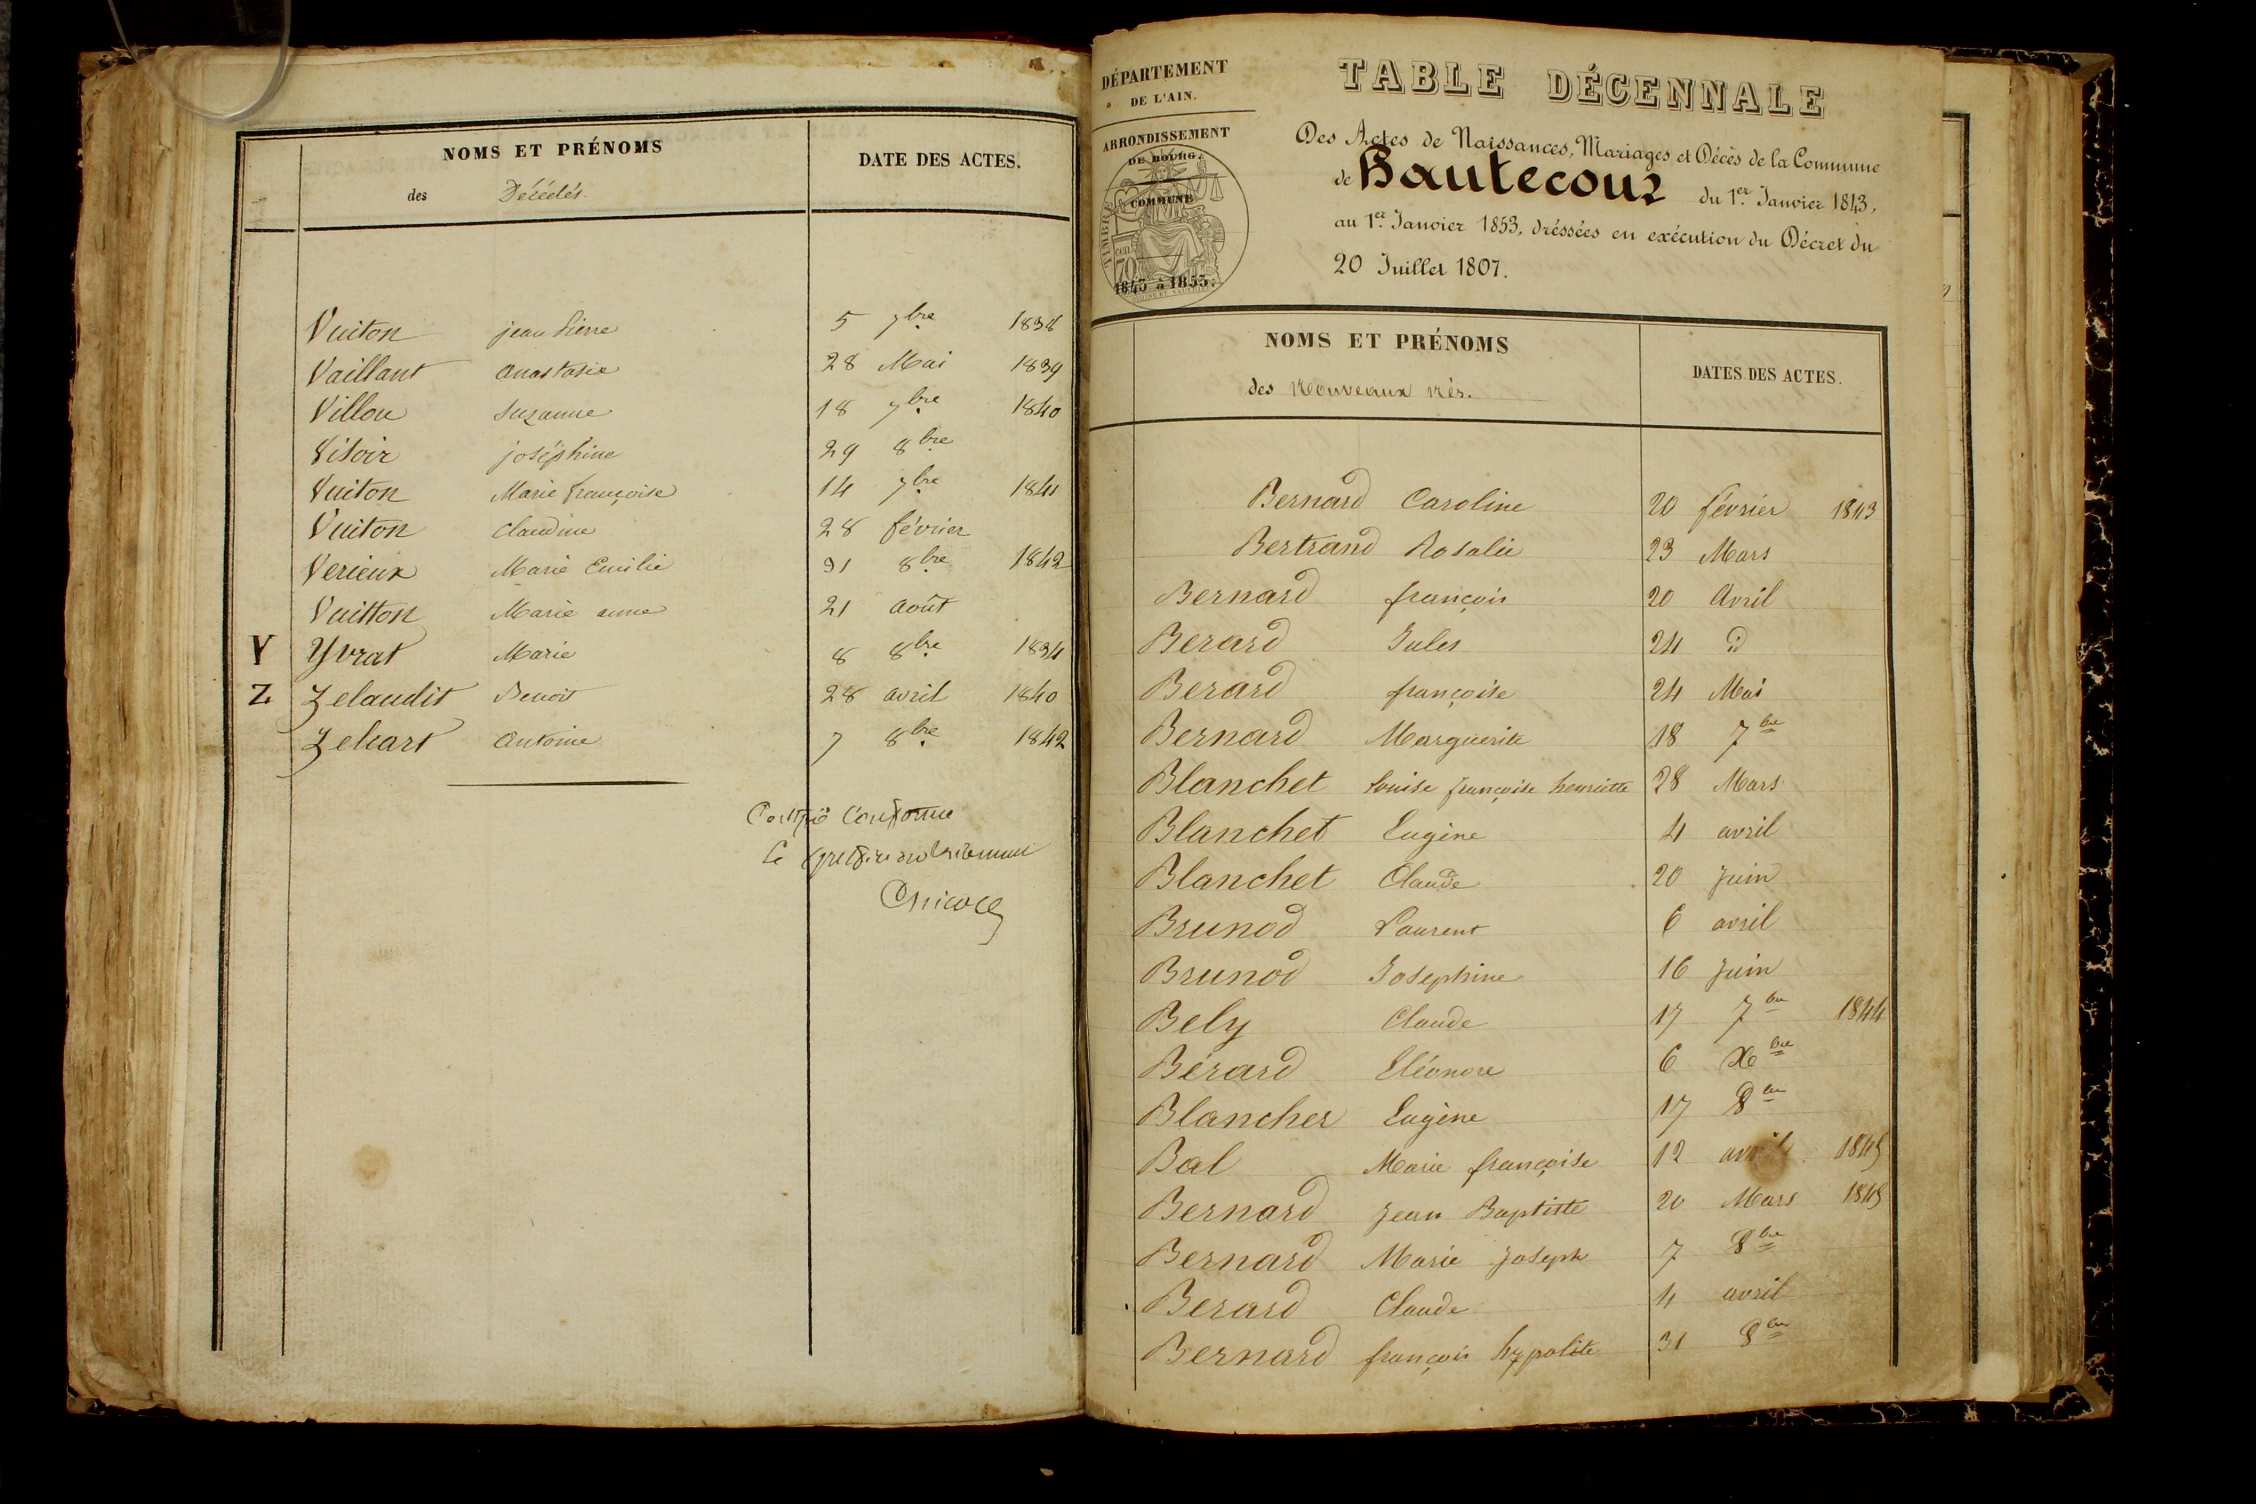 NOMS ET PRÉNOMS
des Décédés
DATE DES ACTES.
Vuiton jean Pierre 5 7bre 1838
Vaillant anastasie 28 Mai 1839
Villou Suzanne 18 7bre 1840
Visoir joséphine 29 8bre
Vuiton Marie françoise 14 7bre 1841
Vuiton Claudine 28 février
Verieux Marie Emilie 31 8bre 1842
Vuitton Marie anne 21 août
Y Yvrat Marie 8 8bre 1834
Z Zelaudit Benoit 28 avril 1840
Zeheart antoine 7 8bre 1842
Certifié Conforme
Le
DÉPARTEMENT
DE L'AIN.
ARRONDISSEMENT
DE BOURG.
COMMUNE
TIMBRE
70
1843 à 1853.
TABLE DÉCENNALE
Des Actes de Naissances, Mariages et Décès de la Commune
de Hautecour du 1er Janvier 1843,
au 1er Janvier 1853, dréssées en exécution du Décret du
20 Juillet 1807.
NOMS ET PRÉNOMS
des Nouveaux nés.
DATES DES ACTES.
Bernard Caroline 20 février 1843
Bertrand Rosalie 23 Mars
Bernard françois 20 Avril
Berard Jules 24 d
Berard françoise 24 Mai
Bernard Marguerite 18 7bre
Blanchet Louise françoise henriette 28 Mars
Blanchet Eugène 4 avril
Blanchet Claude 20 Juin
Brunod Laurent 6 avril
Brunod Josephine 16 Juin
Bely Claude 17 7bre 1844
Bérard Eléonore 6 Xbre
Blancher Eugène 17 8bre
Bal Marie françoise 12 avril 1845
Bernard Jean Baptiste 20 Mars 1845
Bernard Marie Joseph 7 8bre
Berard Claude 4 avril
Bernard françois hypolite 31 8bre